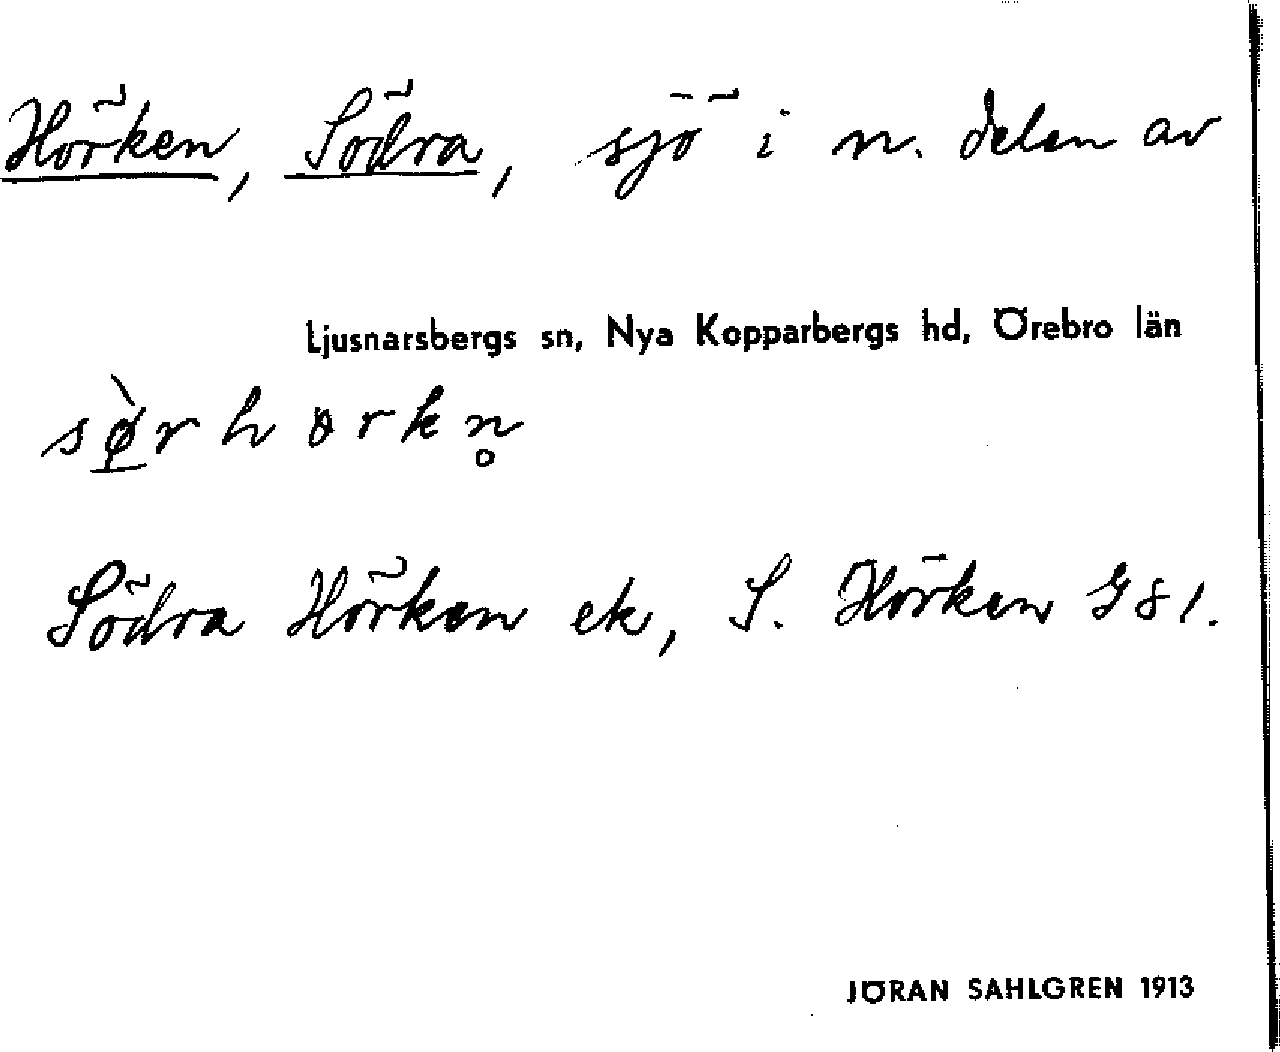 Hörken, Södra, sjö i n. delen av
Ljusnarsbergs sn, Nya Kopparbergs hd, Örebro län
sø̀rhörkn̥
Södra Hörken ek, S. Hörken G 81.
JÖRAN SAHLGREN 1913